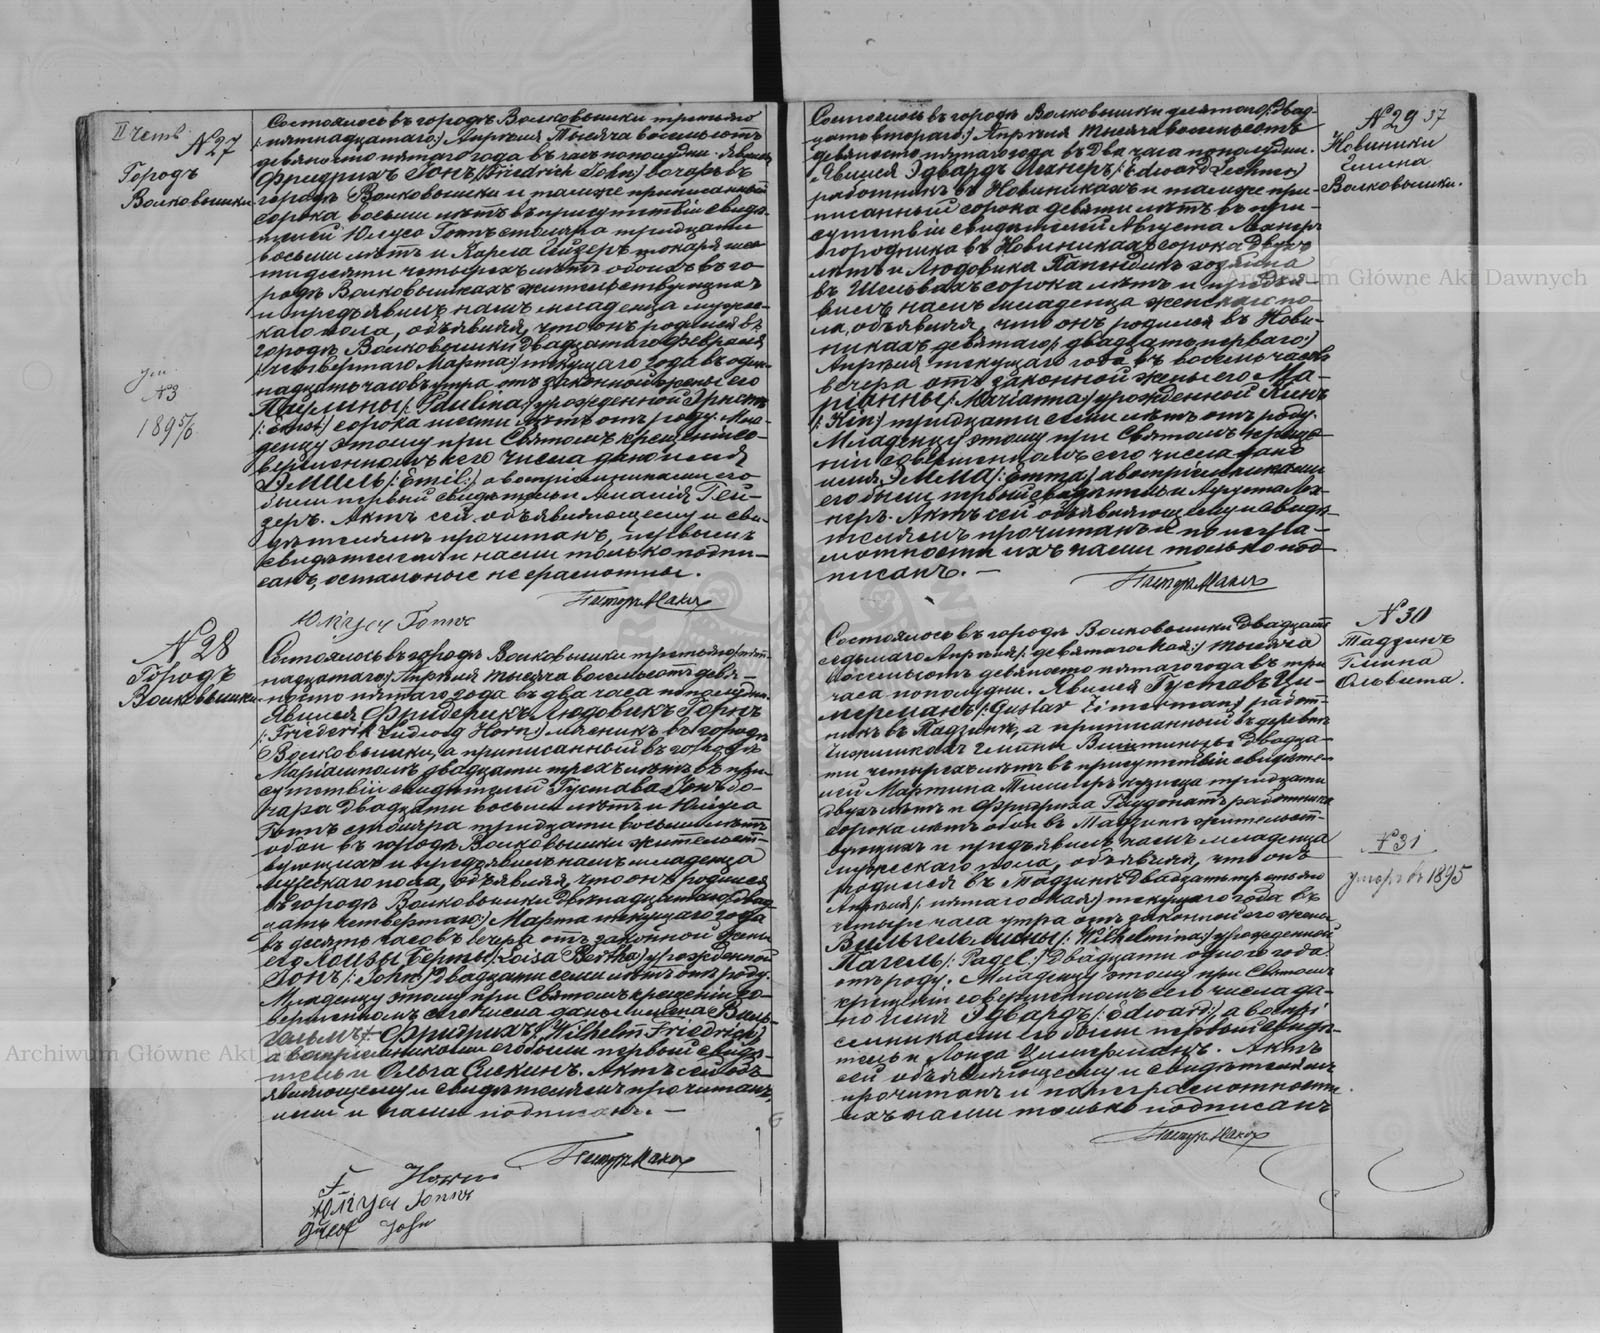 II четв
N 27
Городъ
Волковышки
Состоялось въ городѣ Волковышки третьяго
/:пятнадцатаго:/ Апрѣля Тысяча восемьсотъ
девяносто пятаго года въ часъ пополудни. Явился
Фридрихъ Іонъ /:Friedrich John:/ бочаръ въ
городѣ Волковышки и тамже приписанный
сорока восьми лѣтъ въ присутствіи свидѣ-
телей Юлуса Готъ столяра тридцати
восьми лѣтъ и Карла Гейзеръ токаря шес
тидесяти четырехъ лѣтъ обоихъ въ го
родѣ Волковышкахъ жительствующихъ
и предъявилъ намъ младенца мужес-
каго пола, объявляя, что онъ родился въ
городѣ Волковышки двадцатаго Февраля
/:четвертаго Марта:/ текущаго года въ один-
надцать часовъ утра отъ законной жены его
Паулины /:Paulina:/ урожденной Эрнстъ
/:Ernst:/ сорока шести лѣтъ отъ роду. Мла-
денцу этому при Святомъ крещеніи со-
вершенномъ сего числа дано имя
Эмиль /:Emil:/ а воспріемниками его
были первый свидѣтель и Амалія Гей-
зеръ. Актъ сей объявляющему и сви-
дѣтелямъ прочитанъ, первымъ
свидѣтелемъ и нами только подпи-
санъ, остальные неграмотны.
Пасторъ Махъ
Юліусъ Готъ
ум.
N3
1895/6
N 28
Городъ
Волковышки
Состоялось въ городѣ Волковышки третьяго /:пят-
надцатаго:/ Апрѣля тысяча восемьсотъ девя-
носто пятаго года въ два часа пополудни.
Явился Фридерикъ Людовикъ Горнъ
/:Friederik Ludwig Horn:/ мясникъ въ городѣ
Волковышки, а приписанный въ городѣ
Маріамполь двадцати трехъ лѣтъ въ при-
сутствіи свидѣтелей Густава Іонъ бо-
чара двадцати восьми лѣтъ и Юлиуса
Готъ столяра тридцати восьми лѣтъ
обои въ городѣ Волковышки жительст-
вующихъ и предъявилъ намъ младенца
мужскаго пола, объявляя, что онъ родился
въ городѣ Волковышки двѣнадцатаго /:двад
цать четвертаго:/ Марта текущаго года
въ десять часовъ вечера отъ законной жены
его Лоизы Берты /:Loisa Bertha:/ урожденной
Іонъ /:John:/ двадцати семи лѣтъ отъ роду.
Младенцу этому при Святомъ крещеніи со-
вершенномъ сего числа даны имена Виль-
гельмъ Фридрихъ /:Wilhelm Friedrich:/
а воспріемниками его были первый свидѣ-
тель и Ольга Сискинъ. Актъ сей объ-
являющему и свидѣтелямъ прочитанъ,
ими и нами подписанъ. —
Пасторъ Махъ
F Horn
Юліусъ Готъ
John
N 29 37
Новиники
Гмина
Волковышки.
Состоялось въ городѣ Волковышки десятаго /:двад-
цать втораго:/ Апрѣля тысяча восемьсотъ
девяносто пятаго года въ два часа пополудни.
Явился Эдвардъ Лехнеръ /:Edward Lechner:/
работникъ въ Новиникахъ и тамже при-
писанный сорока девяти лѣтъ въ при-
сутствіи свидѣтелей Августа Лехнеръ
огородника въ Новиникахъ сорока двухъ
лѣтъ и Людовика Папендикъ хозяина
въ Шельвахъ сорока лѣтъ и предъя-
вилъ намъ младенца женскаго по-
ла, объявляя, что онъ родился въ Нови-
никахъ девятаго /:двадцать перваго:/
Апрѣля текущаго года въ восемь часовъ
вечера отъ законной жены его Ма-
ріанны /:Marianna:/ урожденной Кинъ
/:Kin:/ тридцати семи лѣтъ отъ роду.
Младенцу этому при Святомъ креще-
ніи совершенномъ сего числа дано
имя Эмма /:Emma:/ а воспріемниками
его были первый свидѣтель и Августа Лех-
неръ. Актъ сей объявляющему и свидѣ-
телямъ прочитанъ и по негра-
мотности ихъ нами только под-
писанъ. —
Пасторъ Махъ
N 30
Тадзинъ
Гмина
Ольвита.
Состоялось въ городѣ Волковышки двадцать
седьмаго Апрѣля /:девятаго Мая:/ тысяча
восемьсотъ девяносто пятаго года въ три
часа пополудни. Явился Густавъ Ци-
мерманъ /:Gustav Zimerman:/ работ-
никъ въ Тадзинѣ, а приписанный въ деревнѣ
гмины двадца-
ти четырехъ лѣтъ въ присутствіи свидѣте-
лей Мартина кузнеца тридцати
двухъ лѣтъ и Фридриха Гаудонатъ работника
сорока лѣтъ обои въ Тадзинѣ жительст-
вующихъ и предъявилъ намъ младенца
мужескаго пола, объявляя, что онъ
родился въ Тадзинѣ двадцать третьяго
Апрѣля /:пятаго Мая:/ текущаго года въ
четыре часа утра отъ законной его жены
Вильгельмины /:Wilhelmina:/ урожденной
Пагель /:Pagel:/ двадцати одного года
отъ роду. Младенцу этому при Святомъ
крещеніи совершенномъ сего числа да-
но имя Эдвардъ /:Edward:/, а воспрі
емниками его были первый свидѣ-
тель и Лоида Цимерманъ. Актъ
сей объявляющему и свидѣтелямъ
прочитанъ и по неграмотности
ихъ нами только подписанъ
Пасторъ Махъ
N 31
умеръ въ 1895
Archiwum Główne Akt Dawnych
Archiwum Główne Akt